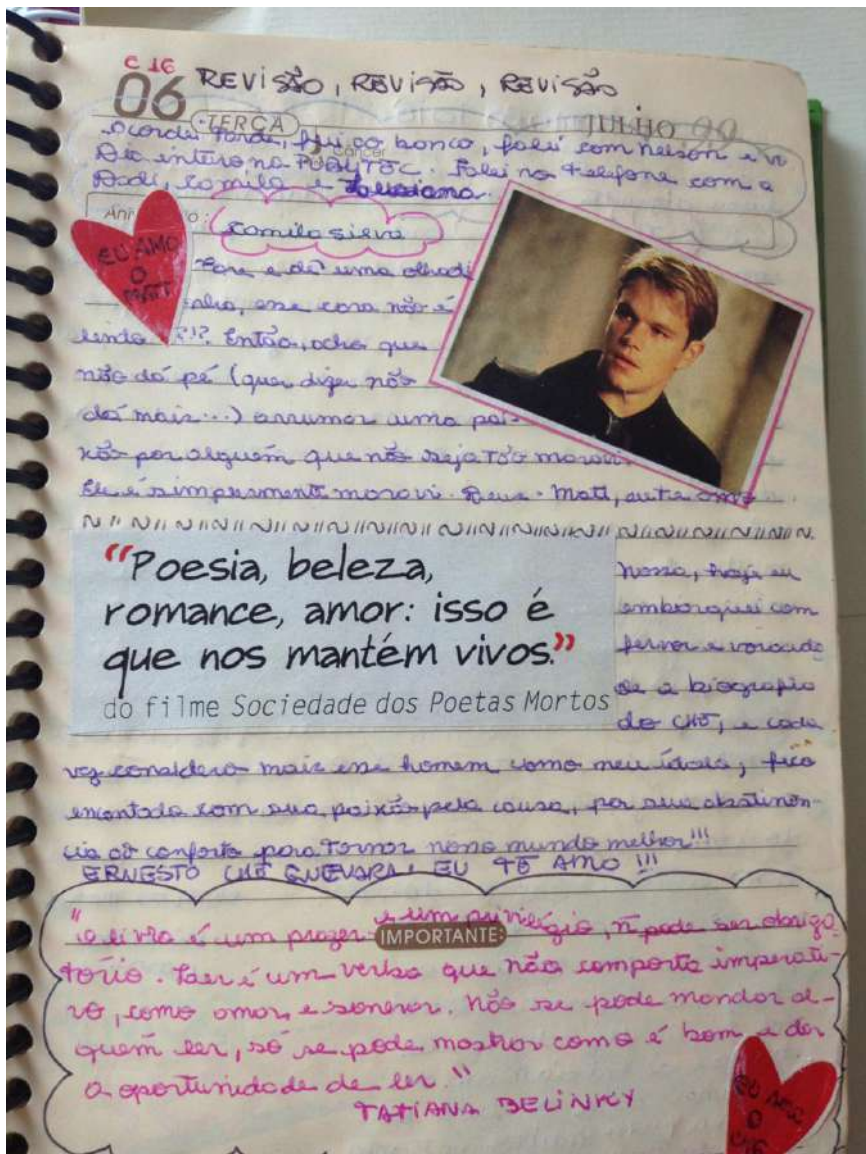 C 16
06 REVISÃO, REVISÃO, REVISÃO
TERÇA JULHO 99
Acordei tarde, fui ao banco, falei com Nelson e vi
Câncer
Dia inteiro na Falei no telefone com a
Dadi, Camila e
Camila Silva
EU AMO
O
MATT
Pare e dê uma olhadi
nha, esse cara não é
lindo ?!? Então, acho que
não dá pé (quer dizer não
dá mais...) arrumar uma pai
xão por alguém que não seja tão maravi
Ele é simplesmente maravi. Deus. Matt,
"Poesia, beleza,
romance, amor: isso é
que nos mantém vivos."
do filme Sociedade dos Poetas Mortos
Nossa, hoje eu
embarquei com
fervor e voracida
de a biografia
do CHE, e cada
vez considero mais esse homem como meu ídolo, fico
encantada com sua paixão pela causa, por sua abstinên-
cia ao conforto para tornar nosso mundo melhor!!!
ERNESTO CHE GUEVARA, EU TE AMO !!!
"O livro é um prazer e um privilégio, ñ pode ser obriga
IMPORTANTE:
tório. Ler é um verbo que não comporta imperati-
vo, como amar, e sonhar. Não se pode mandar al-
guém ler, só se pode mostrar como é bom e dar
a oportunidade de ler."
TATIANA BELINKY
EU AMO
O
CHE